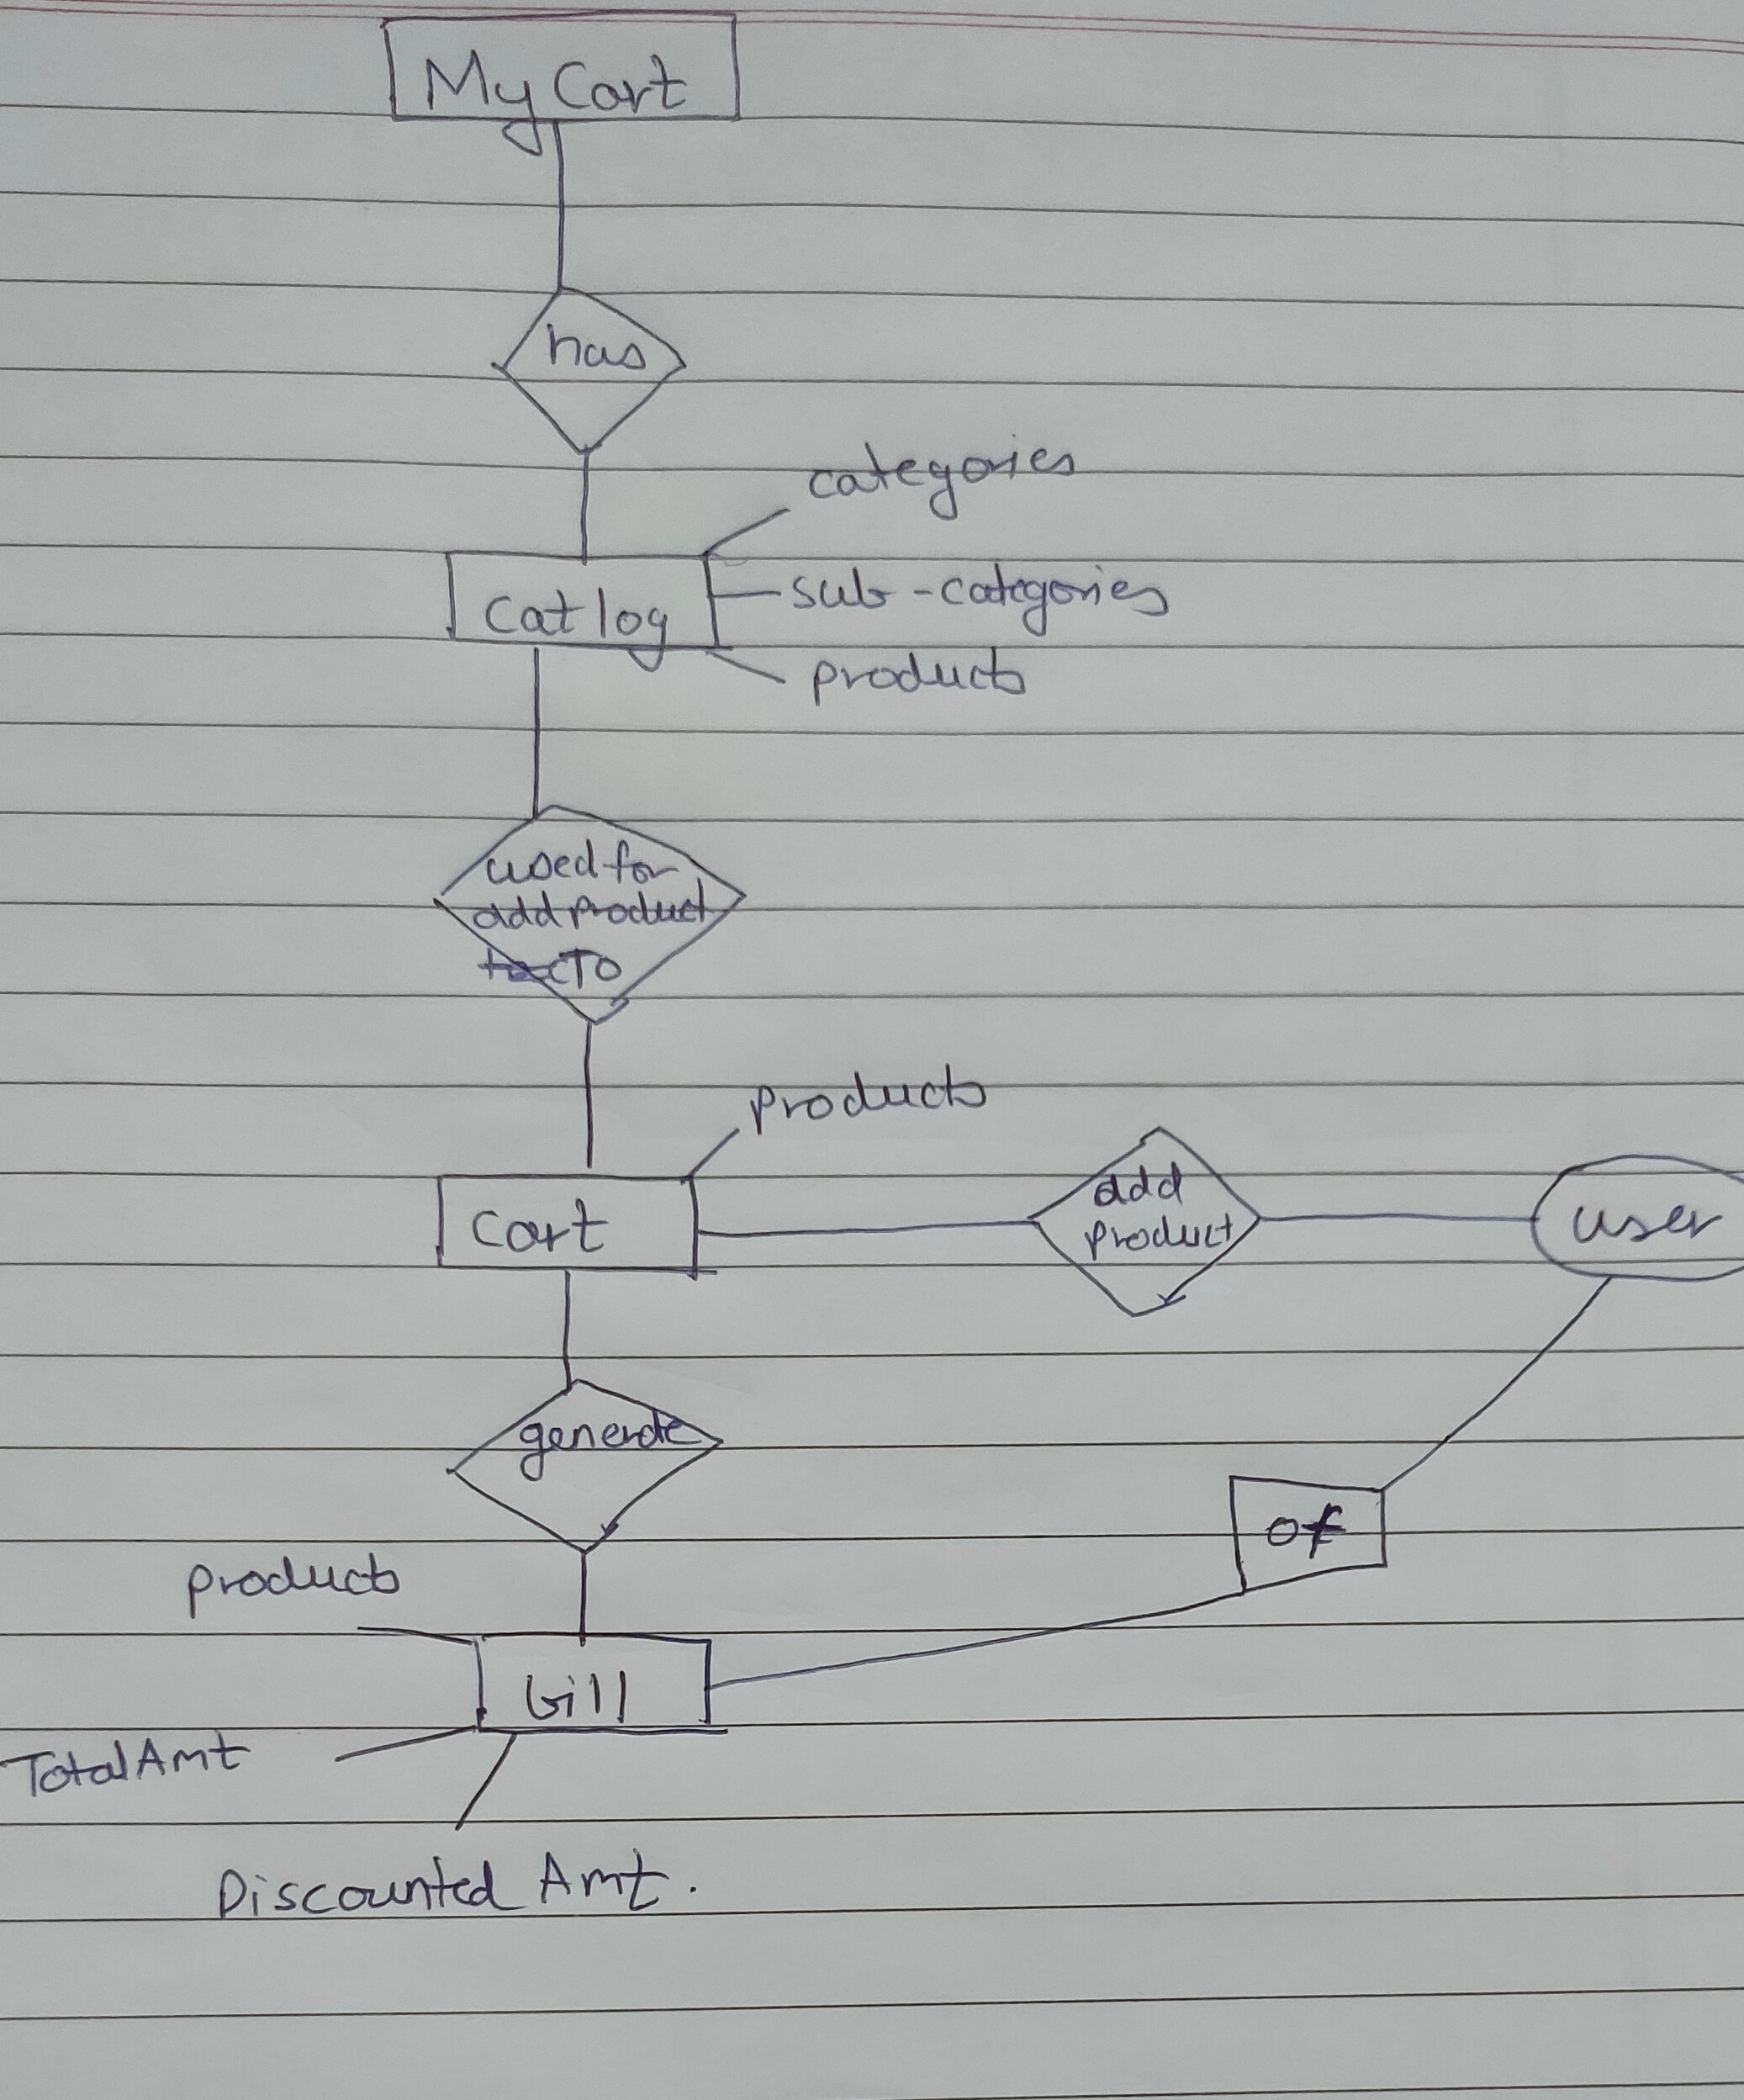 My Cart
has
categories
catlog
sub-categories
products
used for
add product
To
products
cart
add
product
user
generate
of
products
bill
Total Amt
Discounted Amt.